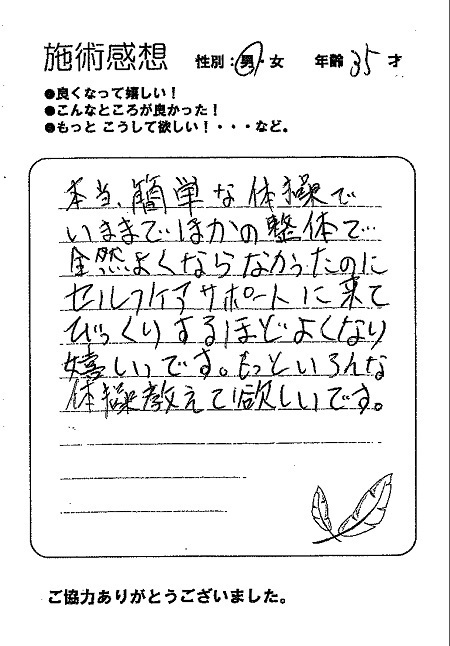 施術感想 性別：男・女 年齢 35 才
●良くなって嬉しい！
●こんなところが良かった！
●もっと こうして欲しい！・・・など。
本当、簡単な体操で
いままでほかの整体で…
全然よくならなかったのに
セルフケアサポートに来て
びっくりするほどよくなり
嬉しいです。もっといろんな
体操教えて欲しいです。
ご協力ありがとうございました。